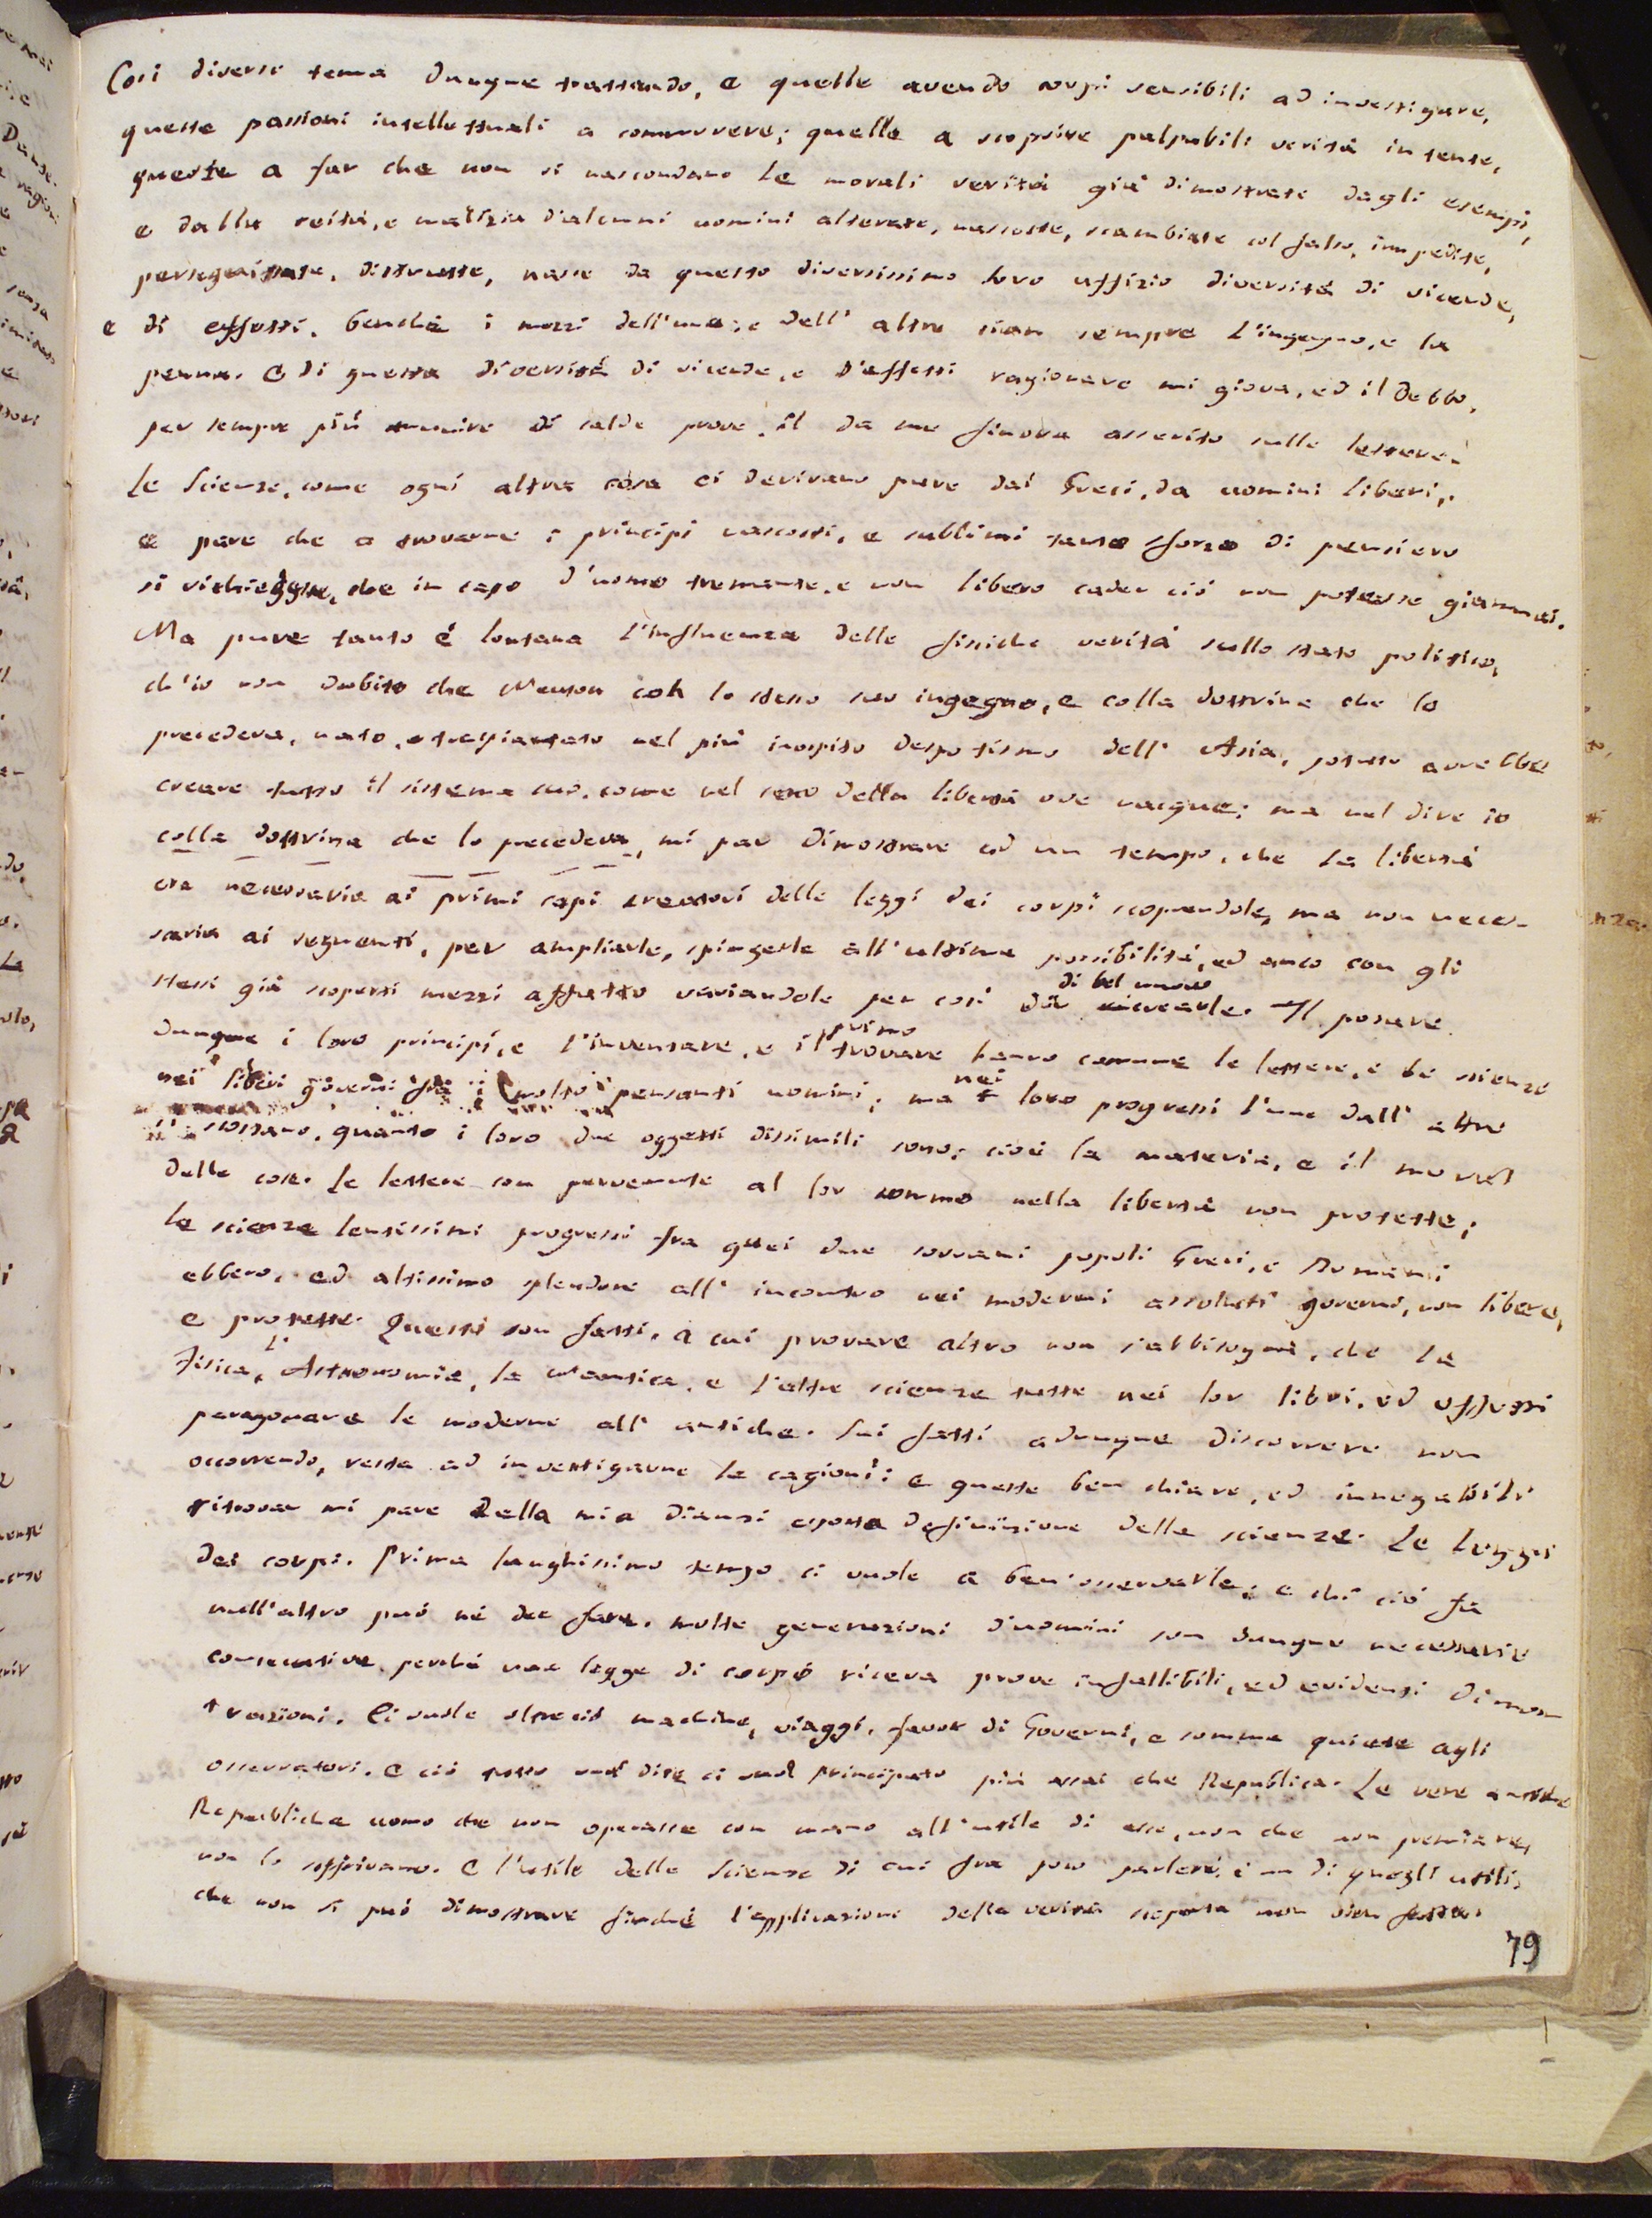 Così diversi tema dunque trattando, e quelle avendo corpi sensibili ad investigare,
queste passioni intellettuali a commuovere; quelle a scoprire palpabili verità intente,
queste a far che non si nascondano le morali verità già dimostrate dagli esempi,
e dalla reità, e malizia d'alcuni uomini alterate, nascoste, scambiate col falso, impedite,
perseguitate, distrutte, nasce da questo diversissimo loro uffizio diversità di vicende,
e di effetti, benchè i mezzi dell'une, e dell'altre sian sempre l'ingegno, e la
penna. E di questa diversità di vicende, e d'effetti ragionare mi giova, ed il debbo,
per sempre più munire di salde prove, il da me finora asserito sulle lettere.
Le Scienze, come ogni altra cosa ci derivano pure dai Greci, da uomini liberi,
e pare che a trovarne i principj nascosti, e sublimi tanto sforzo di pensiero
si richiegga, che in capo d'uomo tremante, e non libero cader ciò non potesse giammai.
Ma pure tanto è lontana l'influenza delle fisiche verità sullo stato politico,
ch'io non dubito che Neuton coh lo stesso suo ingegno, e colla dottrina che lo
precedeva, nato, e trapiantato nel più inospito despotismo dell' Asia, potuto avrebbe
creare tutto il sistema suo, come nel seno della libertà ove nacque: ma nel dire io
colla dottrina che lo precedeva, mi par dimostrare ad un tempo, che la libertà
era necessaria ai primi capi creatori delle leggi dei corpi scoprendole, ma non neces-
saria ai seguenti, per ampliarle, spingerle all'ultima possibilità, ed anco con gli
stessi già scoperti mezzi affatto variandole per così dir ricrearle. Il posare
di bel nuovo
dunque i loro principj, e l'inventare, e il trovare hanno comune le lettere, e le scienze
primo
nei liberi governi fra i molto pensanti uomini; ma nei loro progressi l'une dall' altre
si scostano, quanto i loro due oggetti dissimili sono; cioè la materia, e il moral
delle cose. Le lettere son pervenute al lor sommo nella libertà non protette;
le scienze lentissimi progressi fra quei due sovrani popoli Greci, e Romani
ebbero, ed altissimo splendore all' incontro nei moderni assoluti governi, non libere,
e protette. Questi son fatti, a cui provare altro non s'abbisogna, che la
Fisica, l'Astronomia, la Nautica, e l'altre scienze tutte nei lor libri, ed effetti
paragonare le moderne all' antiche. Sui fatti adunque discorrere non
occorrendo, resta ad investigarne le cagioni: e queste ben chiare, ed innegabili
ritrovar mi pare della mia dianzi esposta definizione delle scienze. Le Leggi
dei corpi. Prima lunghissimo tempo ci vuole a ben'osservarle; e chi ciò fa
null'altro può nè dee fare. molte generazioni d'uomini son dunque necessarie
consecutive, perchè una legge di corpo riceva prove infallibili, ed evidenti dimos-
trazioni. Ci vuole oltreciò machine, viaggi, favor di Governi, e somma quiete agli
osservatori. e ciò tutto vuol dire ci vuol principato più assai che Republica. Le vere antiche
Repubbliche uomo che non operasse con mano all'utile di esse, non che non premiare,
non lo soffrivano. E l'utile delle Scienze di cui fra poco parlerò, è un di quegli utili,
che non si può dimostrare finchè l'applicazione della verità scoperta non vien fatta.
79